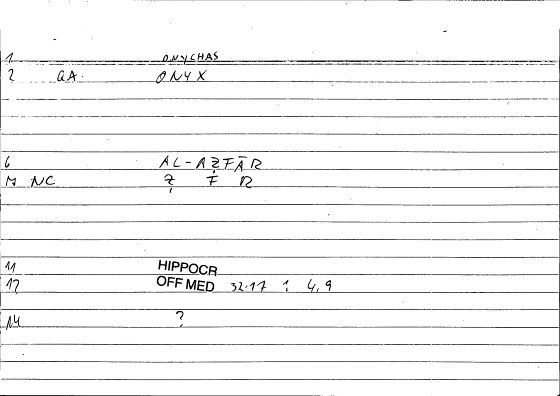 1 ONYCHAS
2 GA ONYX
6 AL-AẒFĀR
M NC Ẓ F R
11 HIPPOCR
12 OFF MED 32.17 : 4,9
14 ?